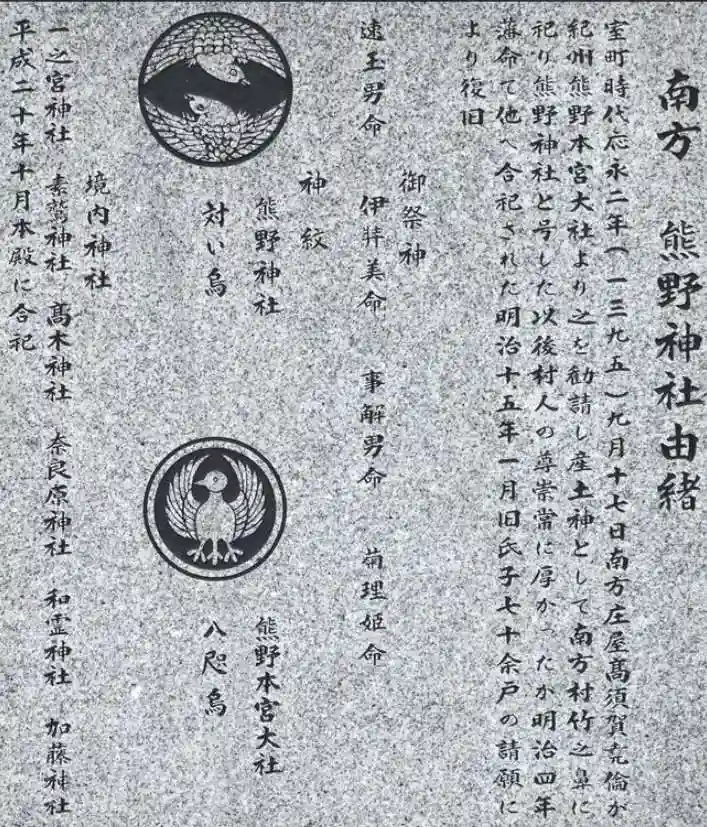 南方　熊野神社由緒
室町時代応永二年(一三九五)九月十七日南方庄屋髙須賀尭倫が
紀州熊野本宮大社より之を勧請し産土神として南方村竹之鼻に
祀り熊野神社と号した以後村人の尊崇常に厚かったが明治四年
藩命て他へ合祀された明治十五年一月旧氏子七十余戸の請願に
より復旧
御祭神
速玉男命　伊弉美命　事解男命　菊理姫命
神紋
熊野神社
対い烏
熊野本宮大社
八咫烏
境内神社
一之宮神社　素鵞神社　髙木神社　奈良原神社　和霊神社　加藤神社
平成二十年十月本殿に合祀